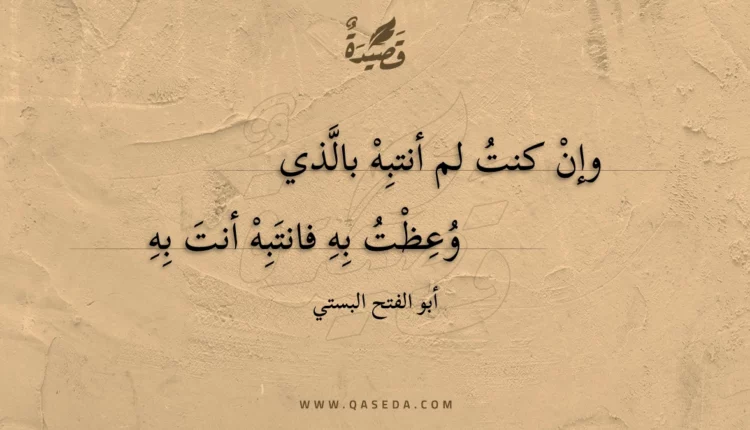 قَصِيْدَةٌ
وإنْ كنتُ لم أنتبِهْ بالَّذي
وُعِظْتُ بِهِ فانتَبِهْ أنتَ بِهِ
أبو الفتح البستي
WWW.QASEDA.COM